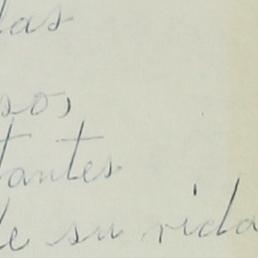 las
sos,
tantes
de su vida